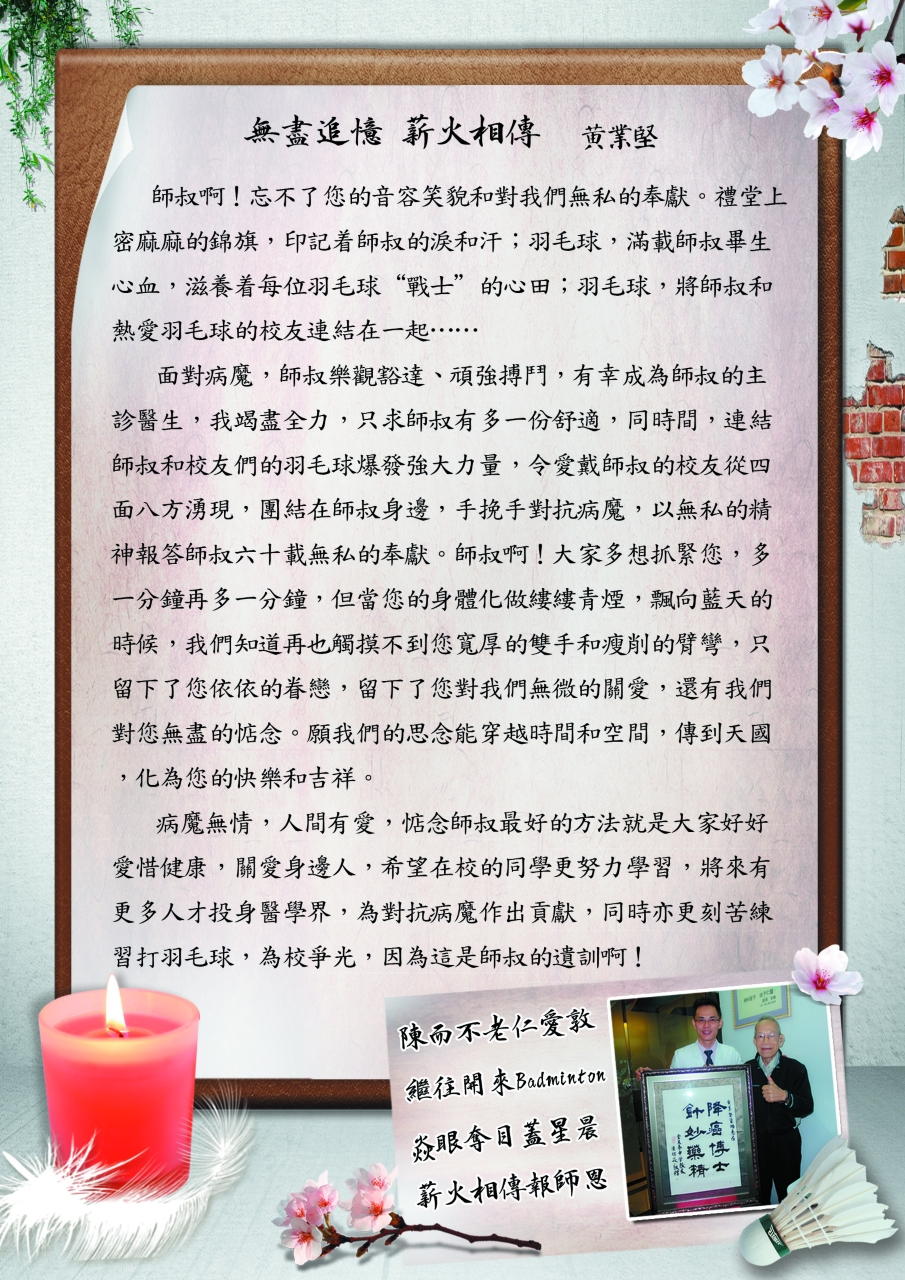 無盡追憶 薪火相傳 黃業堅
師叔啊！忘不了您的音容笑貌和對我們無私的奉獻。禮堂上
密麻麻的錦旗，印記着師叔的淚和汗；羽毛球，滿載師叔畢生
心血，滋養着每位羽毛球“戰士”的心田；羽毛球，將師叔和
熱愛羽毛球的校友連結在一起……
面對病魔，師叔樂觀豁達、頑強搏鬥，有幸成為師叔的主
診醫生，我竭盡全力，只求師叔有多一份舒適，同時間，連結
師叔和校友們的羽毛球爆發強大力量，令愛戴師叔的校友從四
面八方湧現，團結在師叔身邊，手挽手對抗病魔，以無私的精
神報答師叔六十載無私的奉獻。師叔啊！大家多想抓緊您，多
一分鐘再多一分鐘，但當您的身體化做縷縷青煙，飄向藍天的
時候，我們知道再也觸摸不到您寬厚的雙手和瘦削的臂彎，只
留下了您依依的眷戀，留下了您對我們無微的關愛，還有我們
對您無盡的惦念。願我們的思念能穿越時間和空間，傳到天國
，化為您的快樂和吉祥。
病魔無情，人間有愛，惦念師叔最好的方法就是大家好好
愛惜健康，關愛身邊人，希望在校的同學更努力學習，將來有
更多人才投身醫學界，為對抗病魔作出貢獻，同時亦更刻苦練
習打羽毛球，為校爭光，因為這是師叔的遺訓啊！
陳而不老仁愛敦
繼往開來Badminton
焱眼奪目蓋星晨
薪火相傳報師恩
降癌博士
針妙藥精